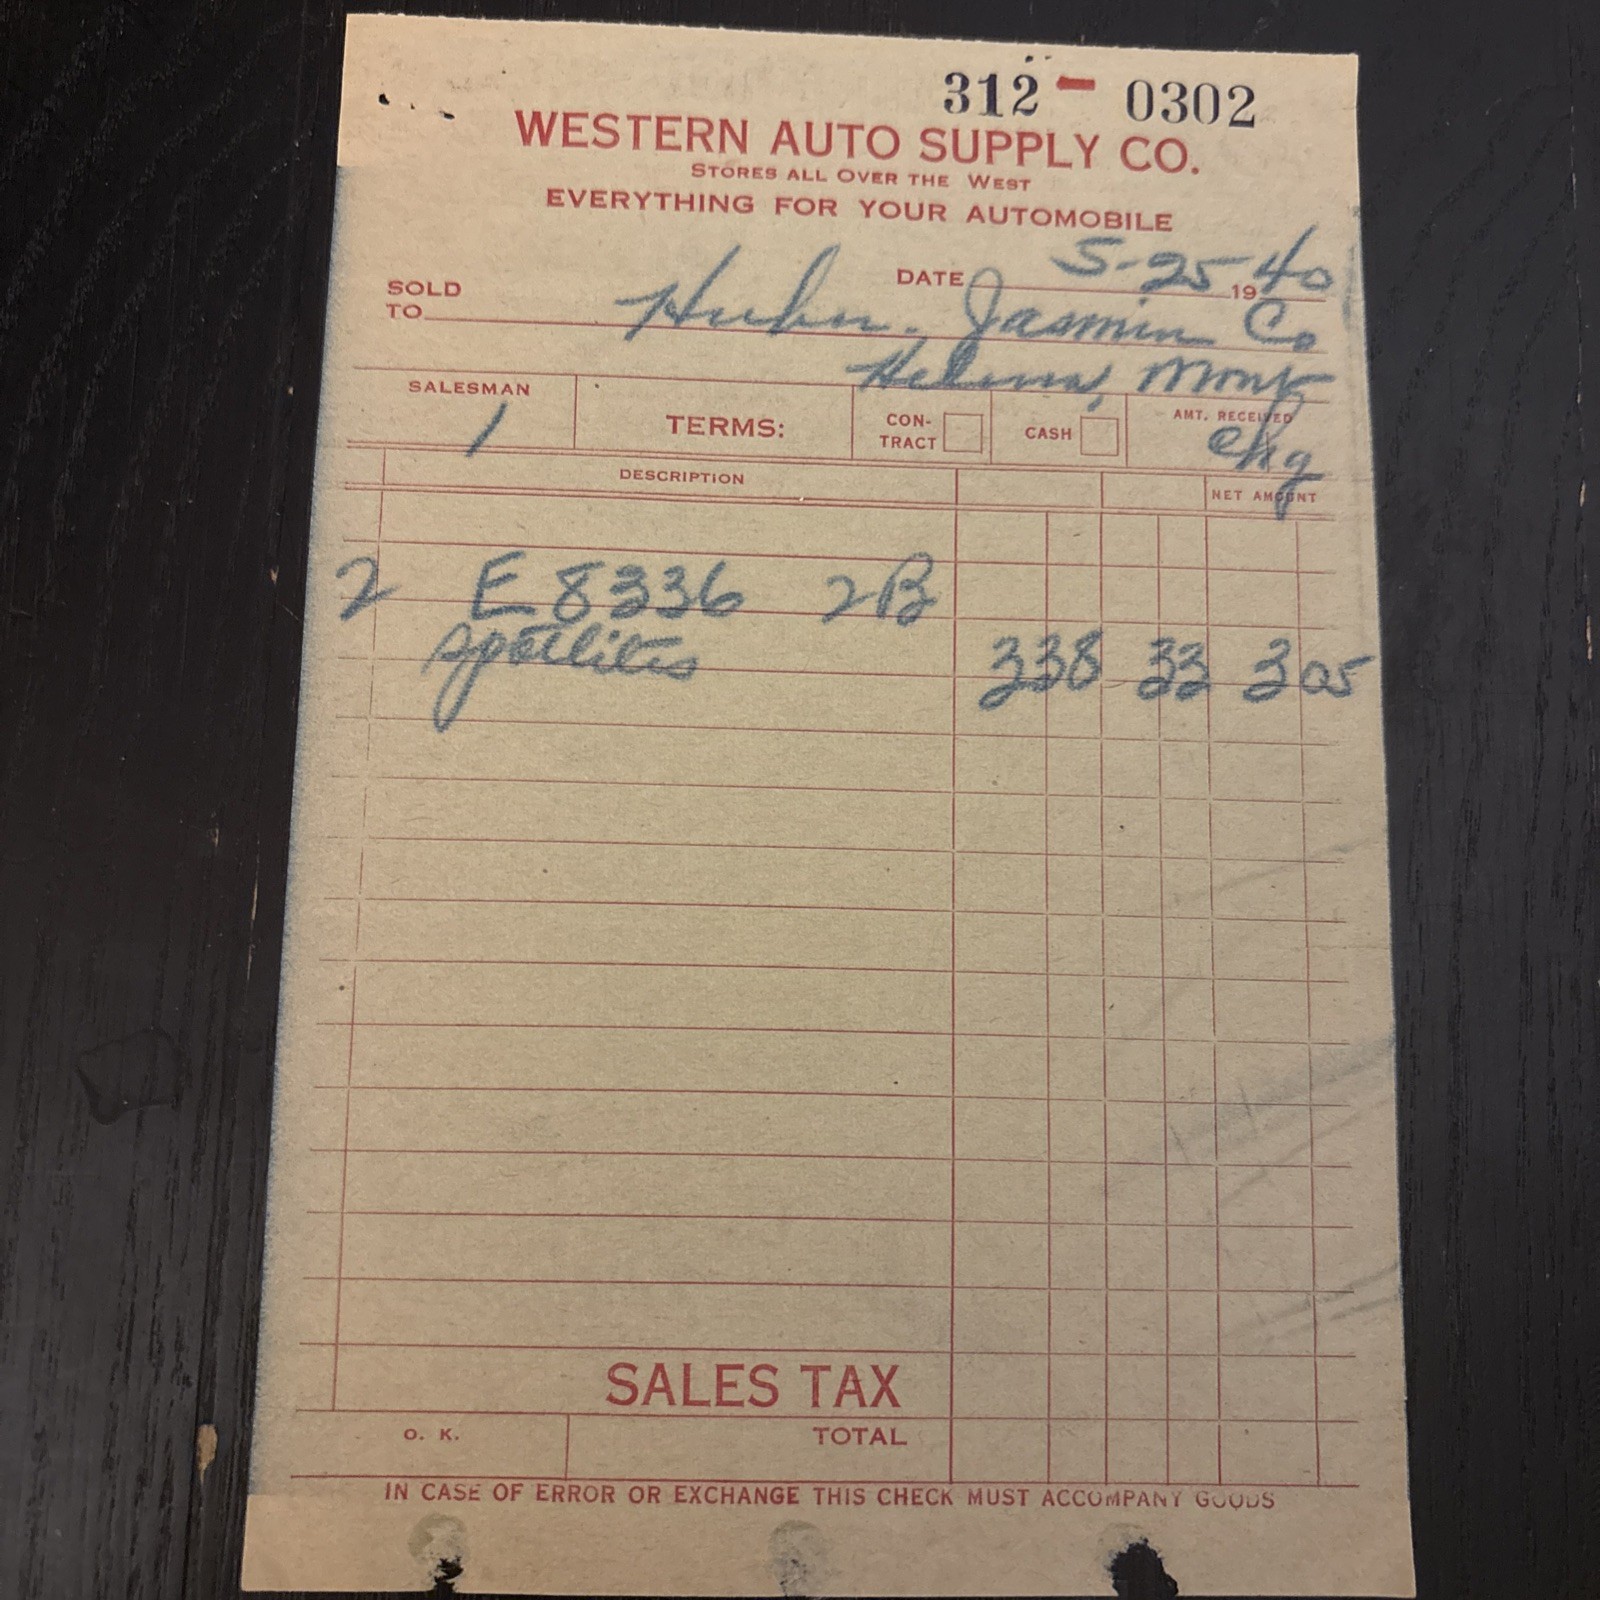 312 - 0302
WESTERN AUTO SUPPLY CO.
STORES ALL OVER THE WEST
EVERYTHING FOR YOUR AUTOMOBILE
DATE 5-25 1940
SOLD TO Jasmin Co
Helena, Mont
SALESMAN 1 TERMS: CON-TRACT CASH AMT. RECEIVED chg
DESCRIPTION NET AMOUNT
2 E 8336 2B
spotlites 338 33 3 05
SALES TAX
O. K. TOTAL
IN CASE OF ERROR OR EXCHANGE THIS CHECK MUST ACCOMPANY GOODS